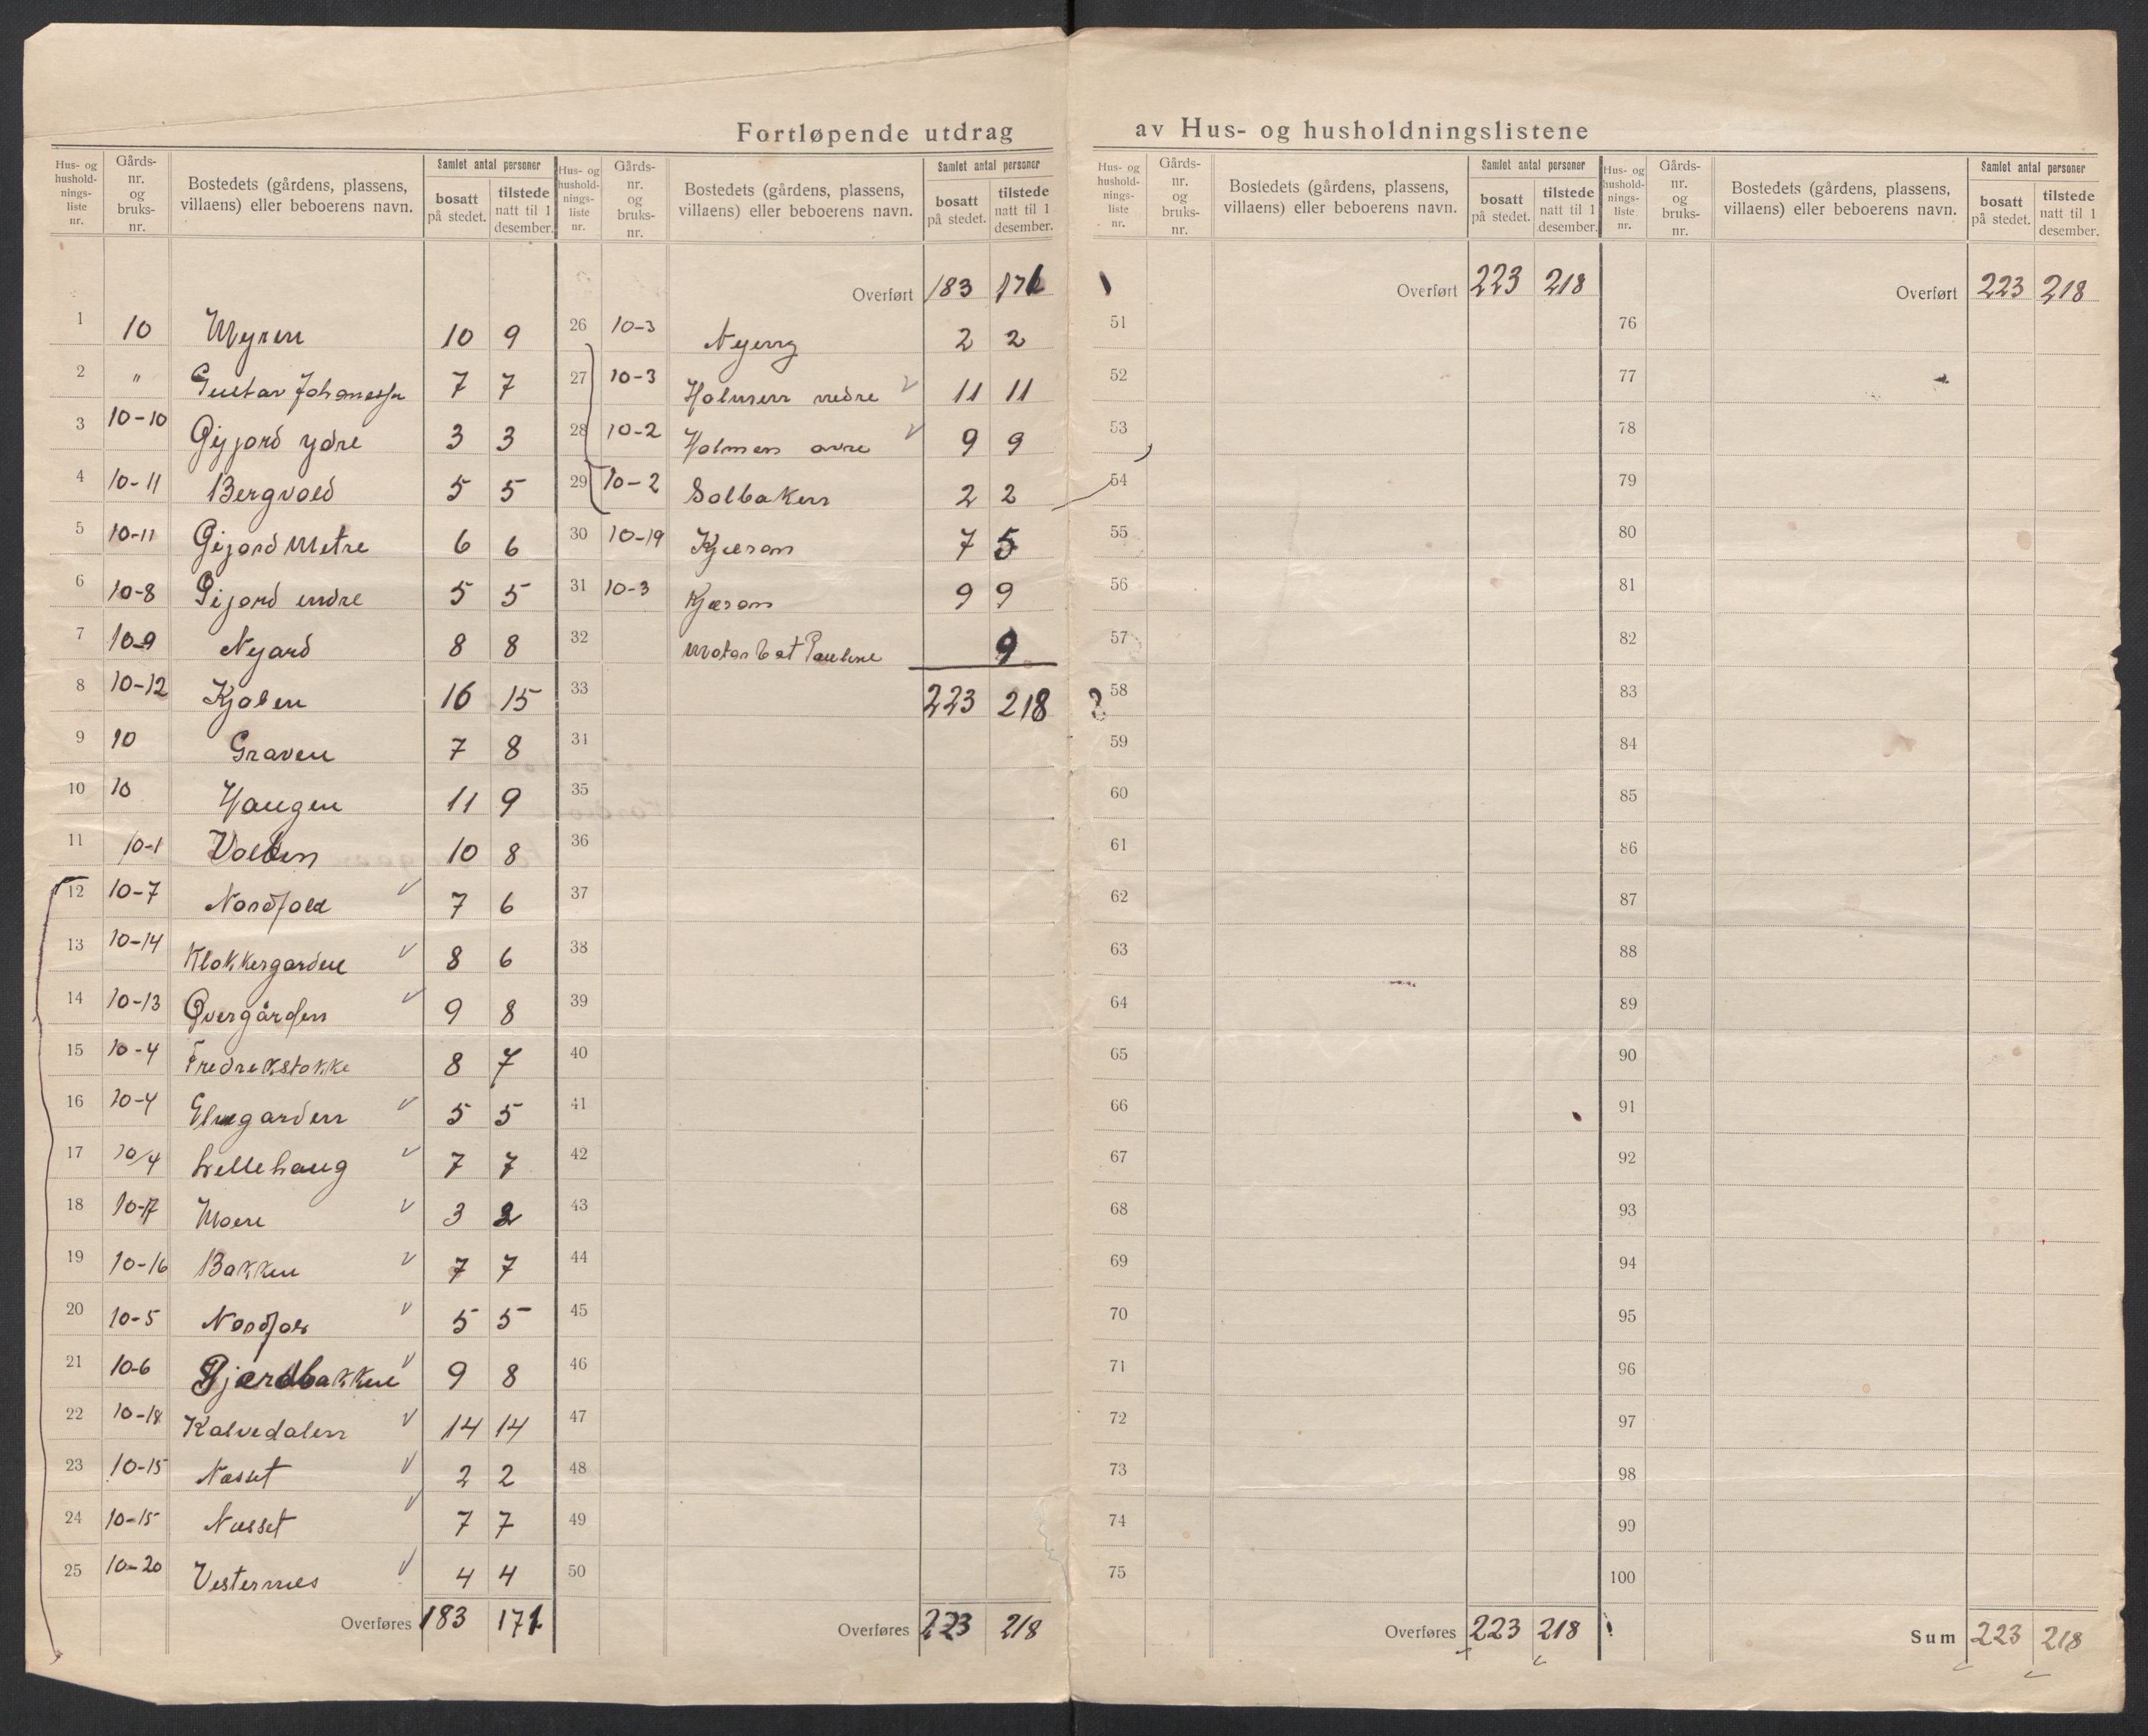 Fortløpende utdrag av Hus- og husholdningslistene
Hus- og husholdningsliste nr. Gårds- nr. og bruks- nr. Bostedets (gårdens, plassens, villaens) eller beboerens navn. Samlet antal personer bosatt på stedet. tilstede natt til 1 desember.
1 10 Myren 10 9
2 " Gustav Johanessen 7 7
3 10-10 Gijord ydre 3 3
4 10-11 Bergvold 5 5
5 10-11 Gijord Metre 6 6
6 10-8 Gijord indre 5 5
7 10-9 Nyard 8 8
8 10-12 Kjolen 16 15
9 10 Graven 7 8
10 10 Haugen 11 9
11 10-1 Volden 10 8
12 10-7 Nordfold v 7 6
13 10-14 Klokkergarden v 8 6
14 10-13 Øvergården v 9 8
15 10-4 Fredrekstokke 8 7
16 10-4 v 5 5
17 10/4 Lellehaug v 7 7
18 10-17 Moen v 3 2
19 10-16 Bakken v 7 7
20 10-5 Nordfol v 5 5
21 10-6 Gjerdbakken v 9 8
22 10-18 Kalvedalen v 14 14
23 10-15 Næsset v 2 2
24 10-15 Næsset v 7 7
25 10-20 Vesternes v 4 4
Overføres 183 171
Hus- og husholdningsliste nr. Gårds- nr. og bruks- nr. Bostedets (gårdens, plassens, villaens) eller beboerens navn. Samlet antal personer bosatt på stedet. tilstede natt til 1 desember.
Overført 183 171
26 10-3 Nyeng 2 2
27 10-3 Holmen nedre v 11 11
28 10-2 Holmen øvre v 9 9
29 10-2 Solbaken 2 2
30 10-19 Kjæran 7 5
31 10-3 Kjæran 9 9
32 Motorbat Pauline 9
33 223 218
34
35
36
37
38
39
40
41
42
43
44
45
46
47
48
49
50
Overføres 223 218
Hus- og husholdningsliste nr. Gårds- nr. og bruks- nr. Bostedets (gårdens, plassens, villaens) eller beboerens navn. Samlet antal personer bosatt på stedet. tilstede natt til 1 desember.
Overført 223 218
51
52
53
54
55
56
57
58
59
60
61
62
63
64
65
66
67
68
69
70
71
72
73
74
75
Overføres 223 218
Hus- og husholdningsliste nr. Gårds- nr. og bruks- nr. Bostedets (gårdens, plassens, villaens) eller beboerens navn. Samlet antal personer bosatt på stedet. tilstede natt til 1 desember.
Overført 223 218
76
77
78
79
80
81
82
83
84
85
86
87
88
89
90
91
92
93
94
95
96
97
98
99
100
Sum 223 218